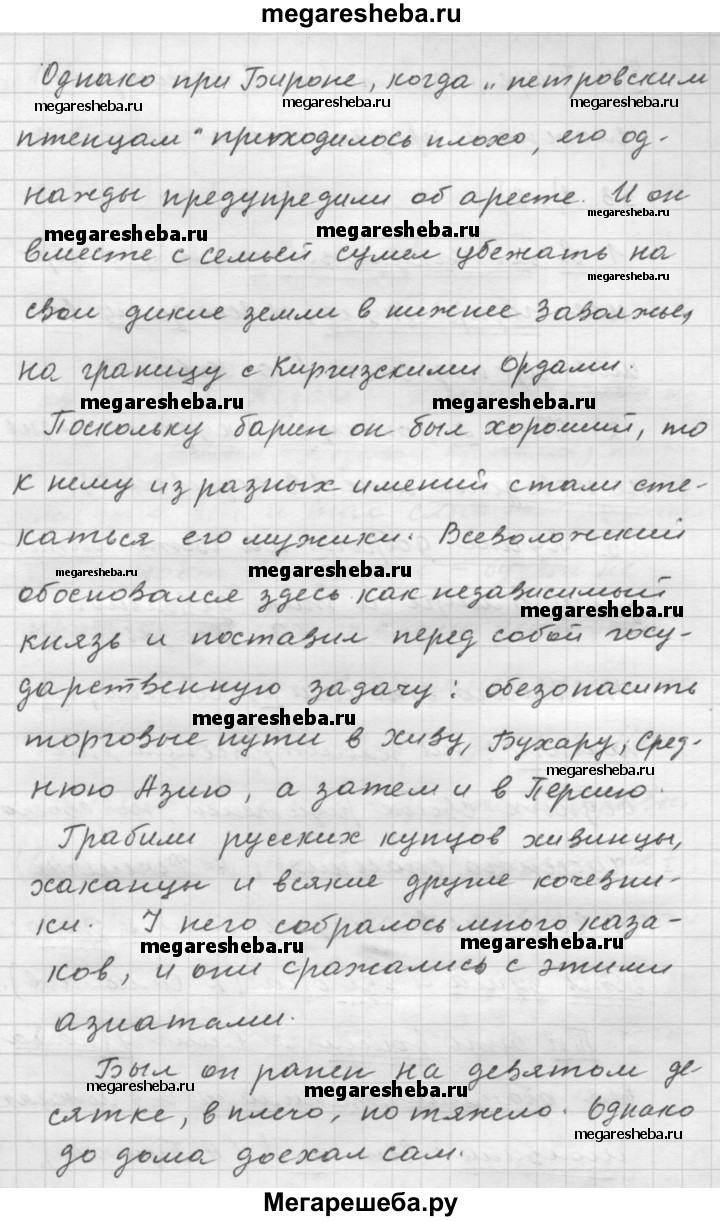 megaresheba.ru
Однако при Бироне, когда „петровским
megaresheba.ru megaresheba.ru megaresheba.ru
птенцам" приходилось плохо, его од-
нажды предупредили об аресте. И он
megaresheba.ru megaresheba.ru
вместе с семьей сумел убежать на
megaresheba.ru
свои дикие земли в нижнее Заволжье,
на границу с Киргизскими Ордами.
megaresheba.ru megaresheba.ru
Поскольку барин он был хороший, то
к нему из разных имений стали сте-
каться его мужики. Всеволожский
megaresheba.ru megaresheba.ru
обосновался здесь как независимый
megaresheba.ru
князь и поставил перед собой госу-
дарственную задачу: обезопасить
megaresheba.ru
торговые пути в Хиву, Бухару, Сред-
megaresheba.ru
нюю Азию, а затем и в Персию.
Грабили русских купцов хивинцы,
хаканцы и всякие другие кочевни-
ки. У него собралось много каза-
megaresheba.ru megaresheba.ru
ков, и они сражались с этими
азиатами.
Был он ранен на девятом де-
megaresheba.ru megaresheba.ru
сятке, в плечо, но тяжело. Однако
megaresheba.ru
до дома доехал сам.
Мегарешеба.ру